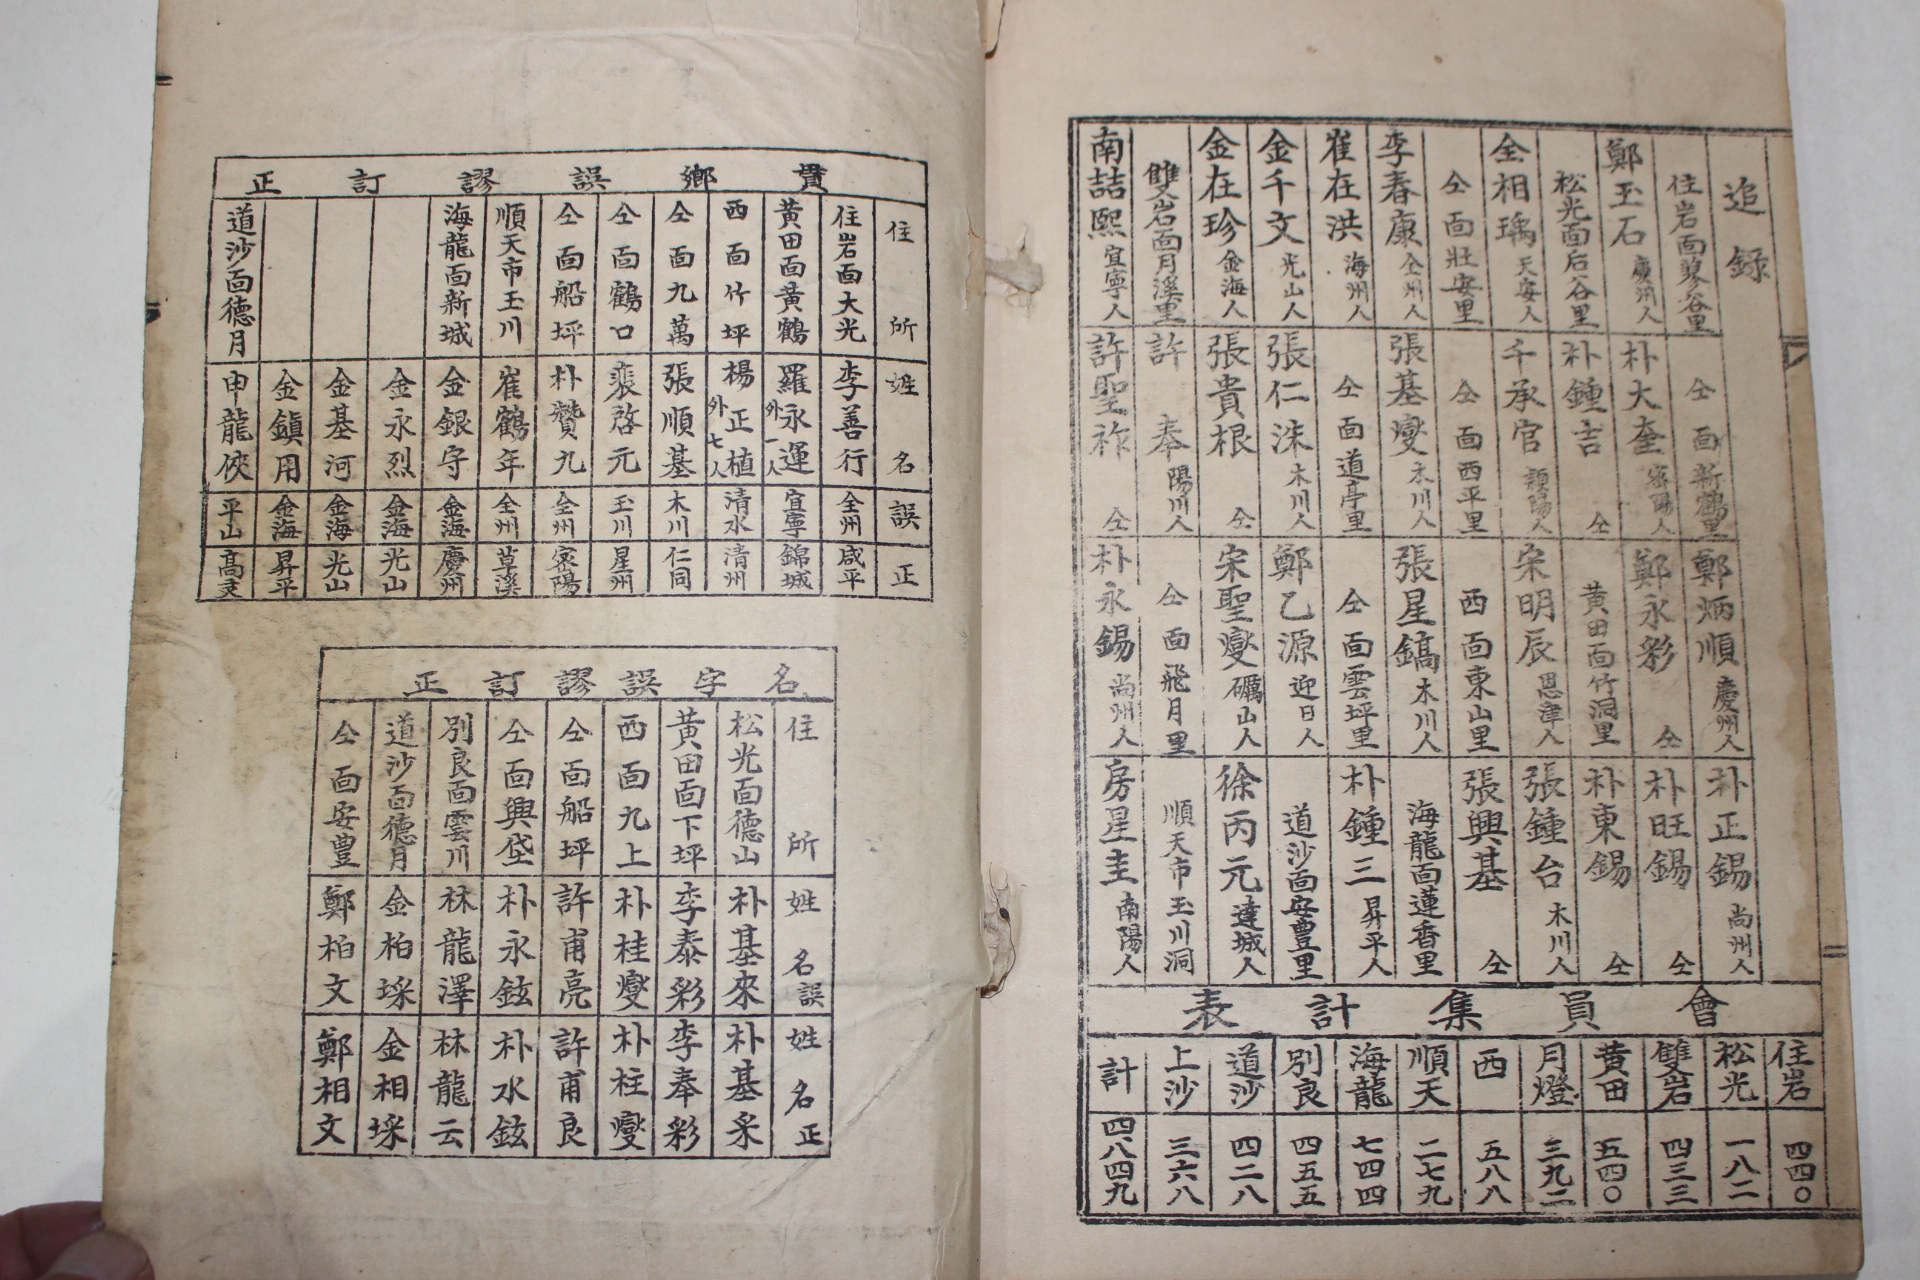 追録
住岩面蓼谷里
鄭玉石 慶州人
松光面后谷里
全相瑀 天安人
仝面壯安里
李春康 全州人
崔在洪 海州人
金千文 光山人
金在珍 金海人
雙岩面月溪里
南喆熙 宜寧人
仝面新鶴里
朴大奎 密陽人
朴鍾吉 仝
千承官 頴陽人
仝面西平里
張基燮 木川人
仝面道亭里
張仁洙 木川人
張貴根 仝
許奉 陽川人
許聖祚 仝
鄭炳順 慶州人
鄭永彩 仝
黃田面竹洞里
宋明辰 恩津人
西面東山里
張星鎬 木川人
仝面雲坪里
鄭乙源 迎日人
宋聖燮 礪山人
仝面飛月里
朴永錫 尚州人
朴正錫 尚州人
朴旺錫 仝
朴東錫 仝
張鍾台 木川人
張興基 仝
海龍面蓮香里
朴鍾三 昇平人
道沙面安豊里
徐丙元 達城人
順天市玉川洞
房星圭 南陽人
會員集計表
住岩 四四〇
松光 一八二
雙岩 四三三
黃田 五四〇
月燈 三九二
西 五八八
順天 二七九
海龍 七四四
別良 四五五
道沙 四二八
上沙 三六八
計 四八四九
貫鄉誤謬訂正
住所 姓名 誤 正
住岩面大光 李善行 全州 咸平
黃田面黃鶴 羅永運 外一人 宜寧 錦城
西面竹坪 楊正植 外七人 清水 清州
仝面九萬 張順基 木川 仁同
仝面鶴口 裵啓元 玉川 星州
仝面船坪 朴贊九 全州 密陽
順天市玉川 崔鶴年 全州 草溪
海龍面新城 金銀守 金海 慶州
金永烈 金海 光山
金基河 金海 光山
金鎭用 金海 昇平
道沙面德月 申龍俠 平山 高灵
名字誤謬訂正
住所 姓名誤 姓名正
松光面德山 朴基來 朴基釆
黃田面下坪 李泰彩 李奉彩
西面九上 朴桂燮 朴柱燮
仝面船坪 許甫亮 許甫良
仝面興垈 朴永鉉 朴水鉉
別良面雲川 林龍澤 林龍云
道沙面德月 金柏埰 金相埰
仝面安豊 鄭柏文 鄭相文